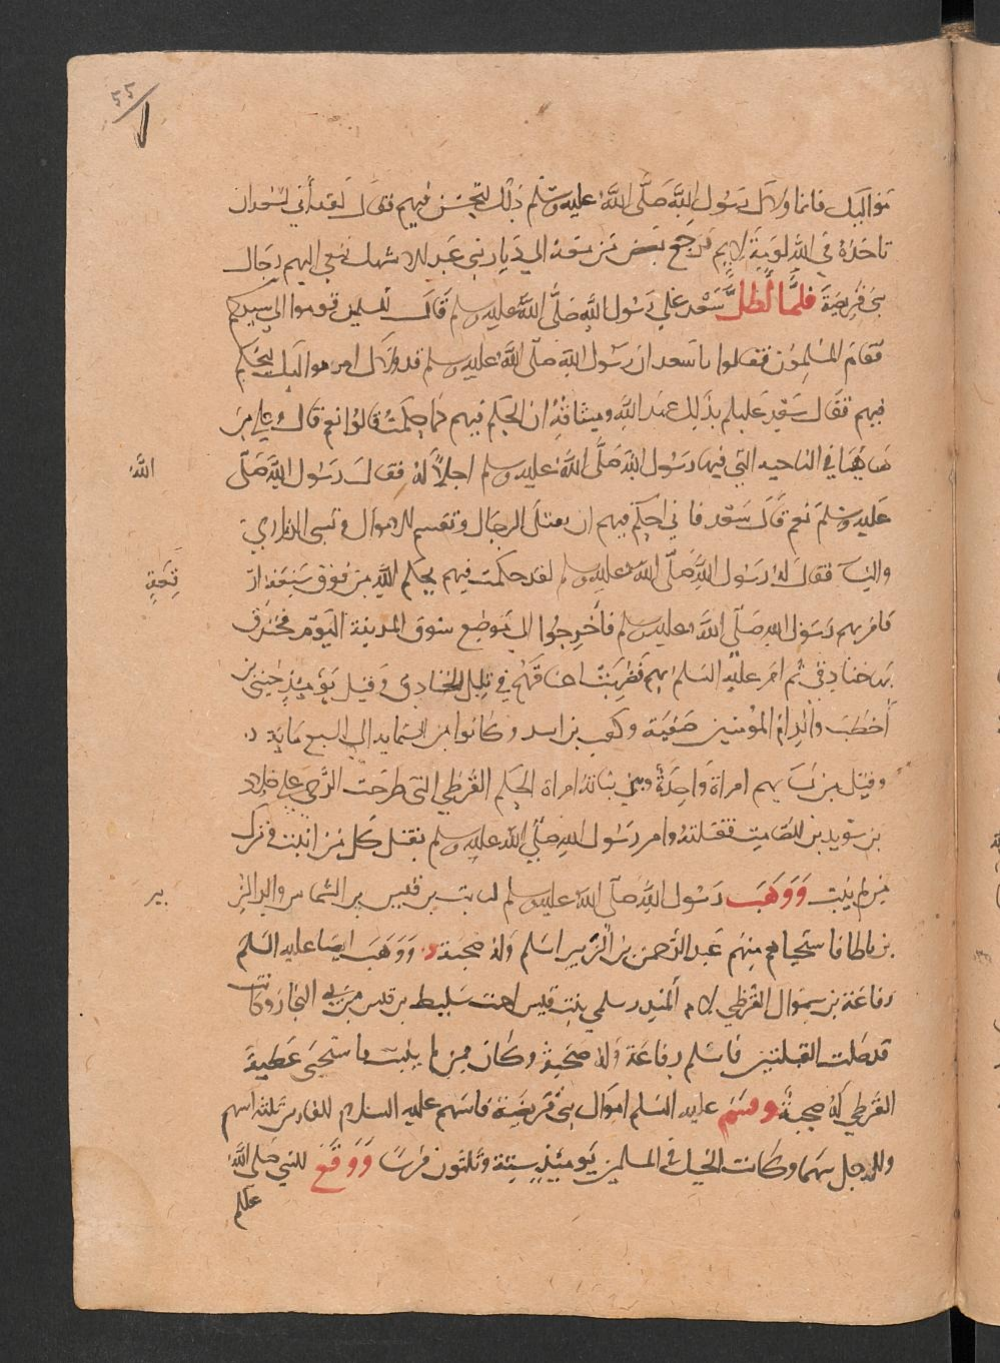 ٥٥
في مواليك فانما ولاك رسول الله صلى الله عليه وسلم ذلك لتحسن فيهم فقال لقد أني لسعد ان
تاخذه في الله لومة لايم فرجع بعض من معه الي ديار بني عبد الاشهل فنعي اليهم رجال
بني قريضة فلما أطل سعد علي رسول الله صلى الله عليه وسلم قال للمسلمين قوموا الى سيدكم
فقام المسلمون فقالوا يا سعد ان رسول الله صلى الله عليه وسلم قد ولاك امر مواليك لتحكم
فيهم فقال سعد عليكم بذلك عهد الله وميثاقه ان الحكم فيهم ما حكمت قالوا نعم قال وعلي من
هاهنا في الناحيه التي فيها رسول الله صلى الله عليه وسلم اجلالا له فقال رسول الله صلى
الله
عليه وسلم نعم قال سعد فاني احكم فيهم ان يقتل الرجال وتقسم الاموال وتسبى الذراري
والنسا فقال له رسول الله صلى الله عليه وسلم لقد حكمت فيهم بحكم الله من فوق سبعة ار
قعة
فامر بهم رسول الله صلى الله عليه وسلم فأخرجوا الى موضع سوق المدينة اليوم فخندق
بها خنادق ثم امر عليه السلم بهم فضربت اعناقهم في تلك الخنادق وقتل يومئذ حيي بن
أخطب والد ام المؤمنين صفية وكعب بن اسد وكانوا من الستمايه الى السبع ماية
وقتل من نسايهم امراة واحدة وهي بنانة امراة الحكم القرظي التي طرحت الرحى على خلاد
بن سويد بن الصامت فقتلته وامر رسول الله صلى الله عليه وسلم بقتل كل من انبت وترك
من لم ينبت ووهب رسول الله صلى الله عليه وسلم لثابت بن قيس بن الشماس والد الز
بير
بن باطا فاستحياهم منهم عبد الرحمن بن الزبير اسلم وله صحبة ووهب ايضا عليه السلم
رفاعة بن سموال القرظي لام المنذر سلمى بنت قيس اخت سليط بن قيس من بني النجار وكانت
قد صلت القبلتين فاسلم رفاعة وله صحبة وكان ممن لم ينبت فاستحيى عطية
القرظي له صحبة وقسم عليه السلم اموال بني قريضة فاسهم عليه السلام للفارس ثلثة اسهم
وللراجل سهما وكانت الخيل في المسلمين يومئذ ستة وثلثون فرسا ووقع للنبي صلى الله
عليه